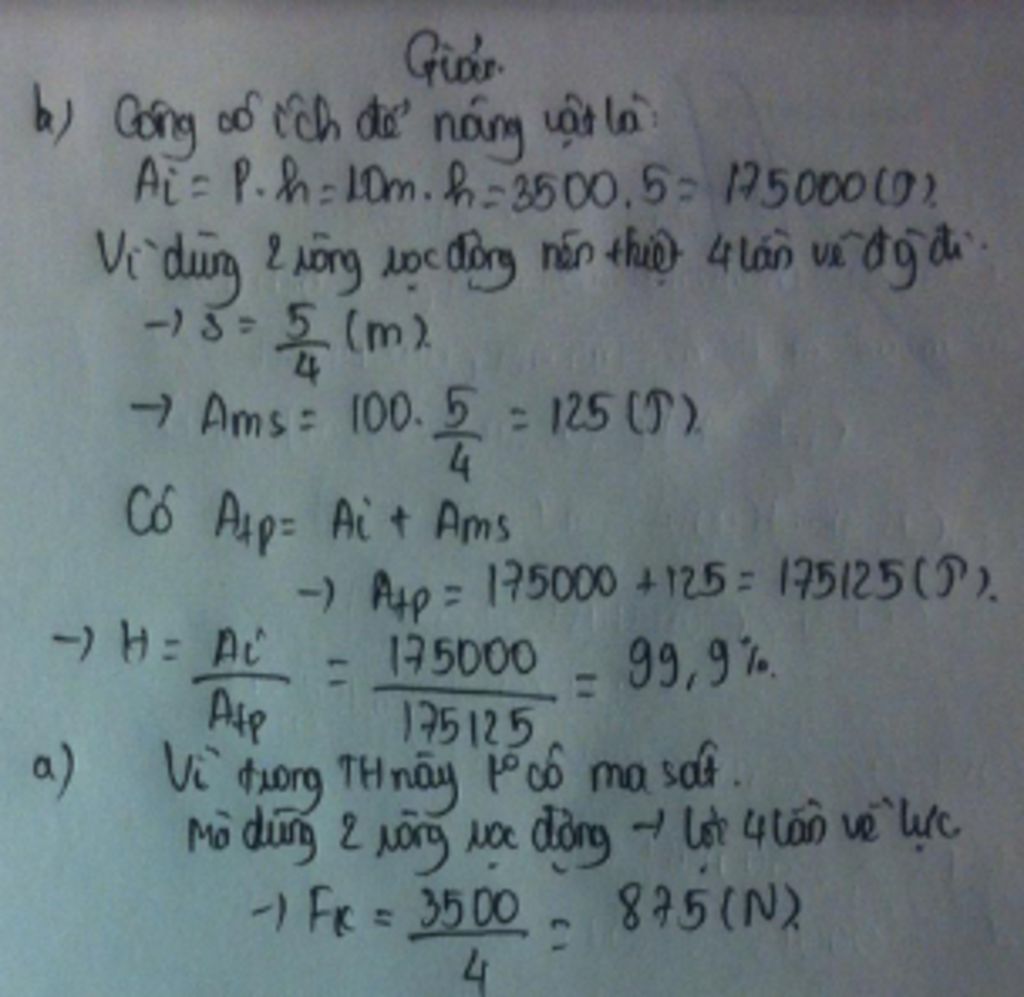 Giải
b) Công có ích để nâng vật là:
Ai = P.h = 10m.h = 3500.5 = 175000(J).
Vì dùng 2 ròng rọc động nên thiệt 4 lần về đg đi.
→ S = 5/4 (m).
→ Ams = 100. 5/4 = 125 (J).
Có Atp = Ai + Ams
→ Atp = 175000 + 125 = 175125 (J).
→ H = Ai/Atp = 175000/175125 = 99,9%.
a) Vì trong TH này k° có ma sát.
Mà dùng 2 ròng rọc động → lợi 4 lần về lực
→ Fk = 3500/4 = 875 (N).